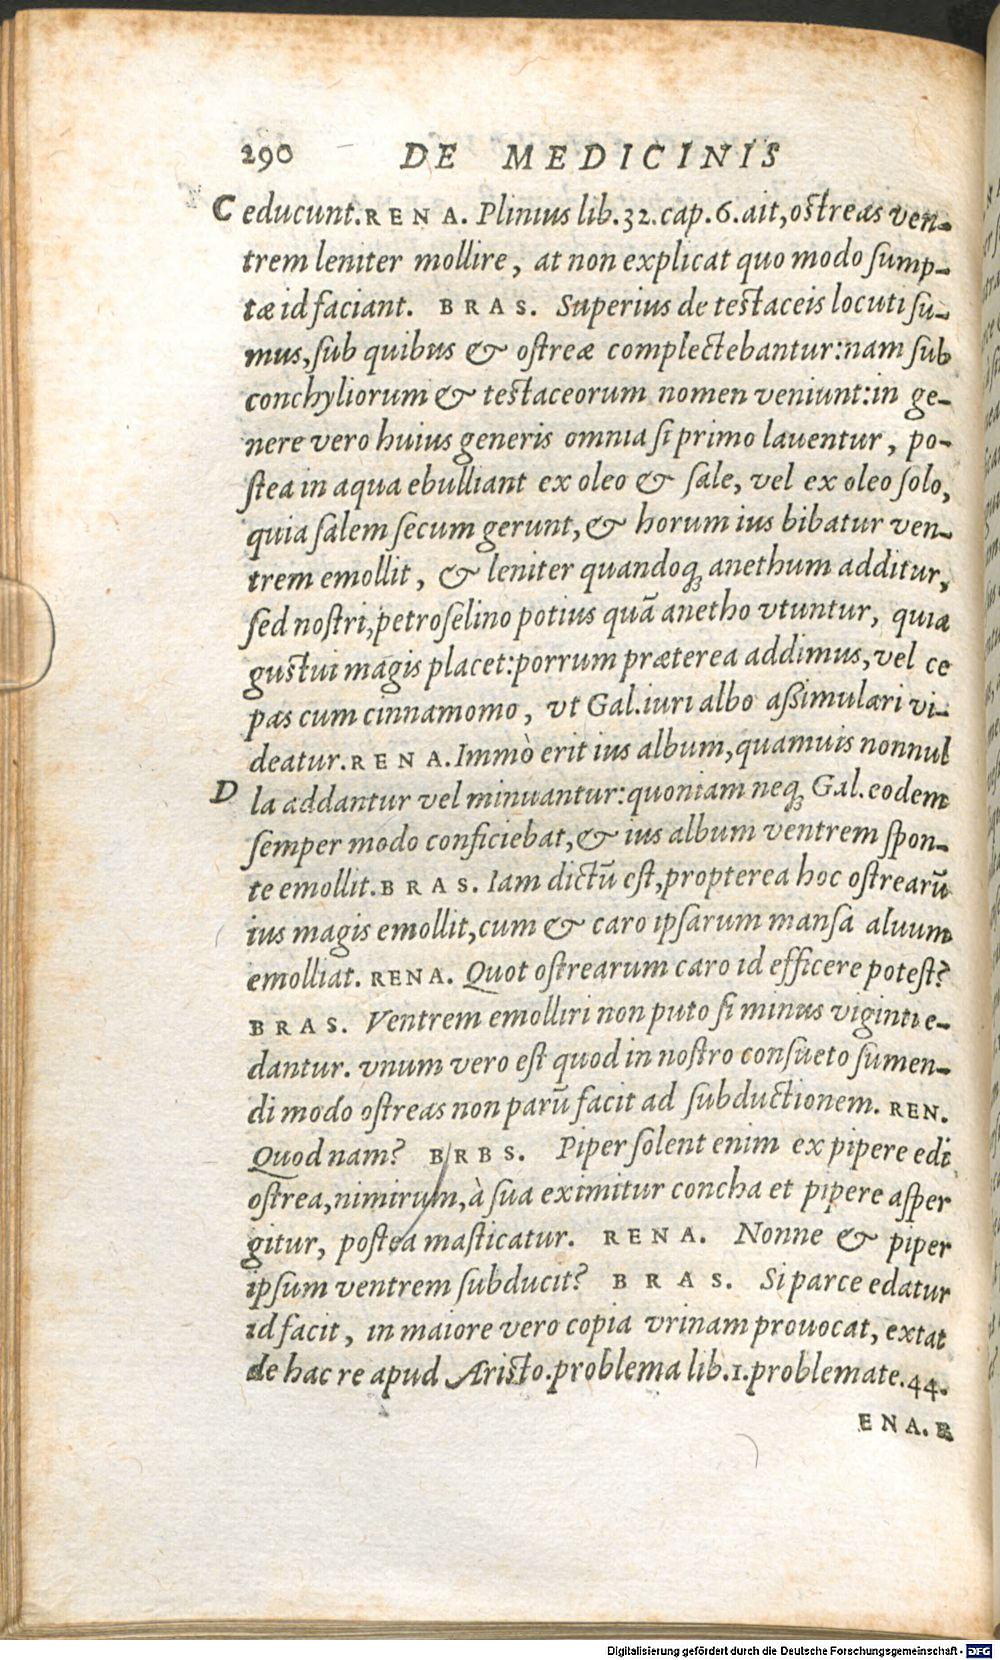 290 DE MEDICINIS
C educunt. RENA. Plinius lib. 32. cap. 6. ait, ostreas ven-
trem leniter mollire, at non explicat quo modo sump-
tæ id faciant. BRAS. Superius de testaceis locuti su-
mus, sub quibus & ostreæ complectebantur: nam sub
conchyliorum & testaceorum nomen veniunt: in ge-
nere vero huius generis omnia si primo lauentur, po-
stea in aqua ebulliant ex oleo & sale, vel ex oleo solo,
quia salem secum gerunt, & horum ius bibatur ven-
trem emollit, & leniter quandoq; anethum additur,
sed nostri, petroselino potius quã anetho vtuntur, quia
gustui magis placet: porrum præterea addimus, vel ce
pas cum cinnamomo, vt Gal. iuri albo assimulari vi-
deatur. RENA. Immò erit ius album, quamuis nonnul
D la addantur vel minuantur: quoniam neq; Gal. eodem
semper modo conficiebat, & ius album ventrem spon-
te emollit. BRAS. Iam dictũ est, propterea hoc ostrearũ
ius magis emollit, cum & caro ipsarum mansa aluum
emolliat. RENA. Quot ostrearum caro id efficere potest?
BRAS. Ventrem emolliri non puto si minus viginti e-
dantur. vnum vero est quod in nostro consueto sumen-
di modo ostreas non parũ facit ad subductionem. REN.
Quod nam? BRBS. Piper solent enim ex pipere edi
ostrea, nimirum, à sua eximitur concha et pipere asper
gitur, postea masticatur. RENA. Nonne & piper
ipsum ventrem subducit? BRAS. Si parce edatur
id facit, in maiore vero copia vrinam prouocat, extat
de hac re apud Aristo. problema lib. 1. problemate. 44.
ENA. R
Digitalisierung gefördert durch die Deutsche Forschungsgemeinschaft - DFG